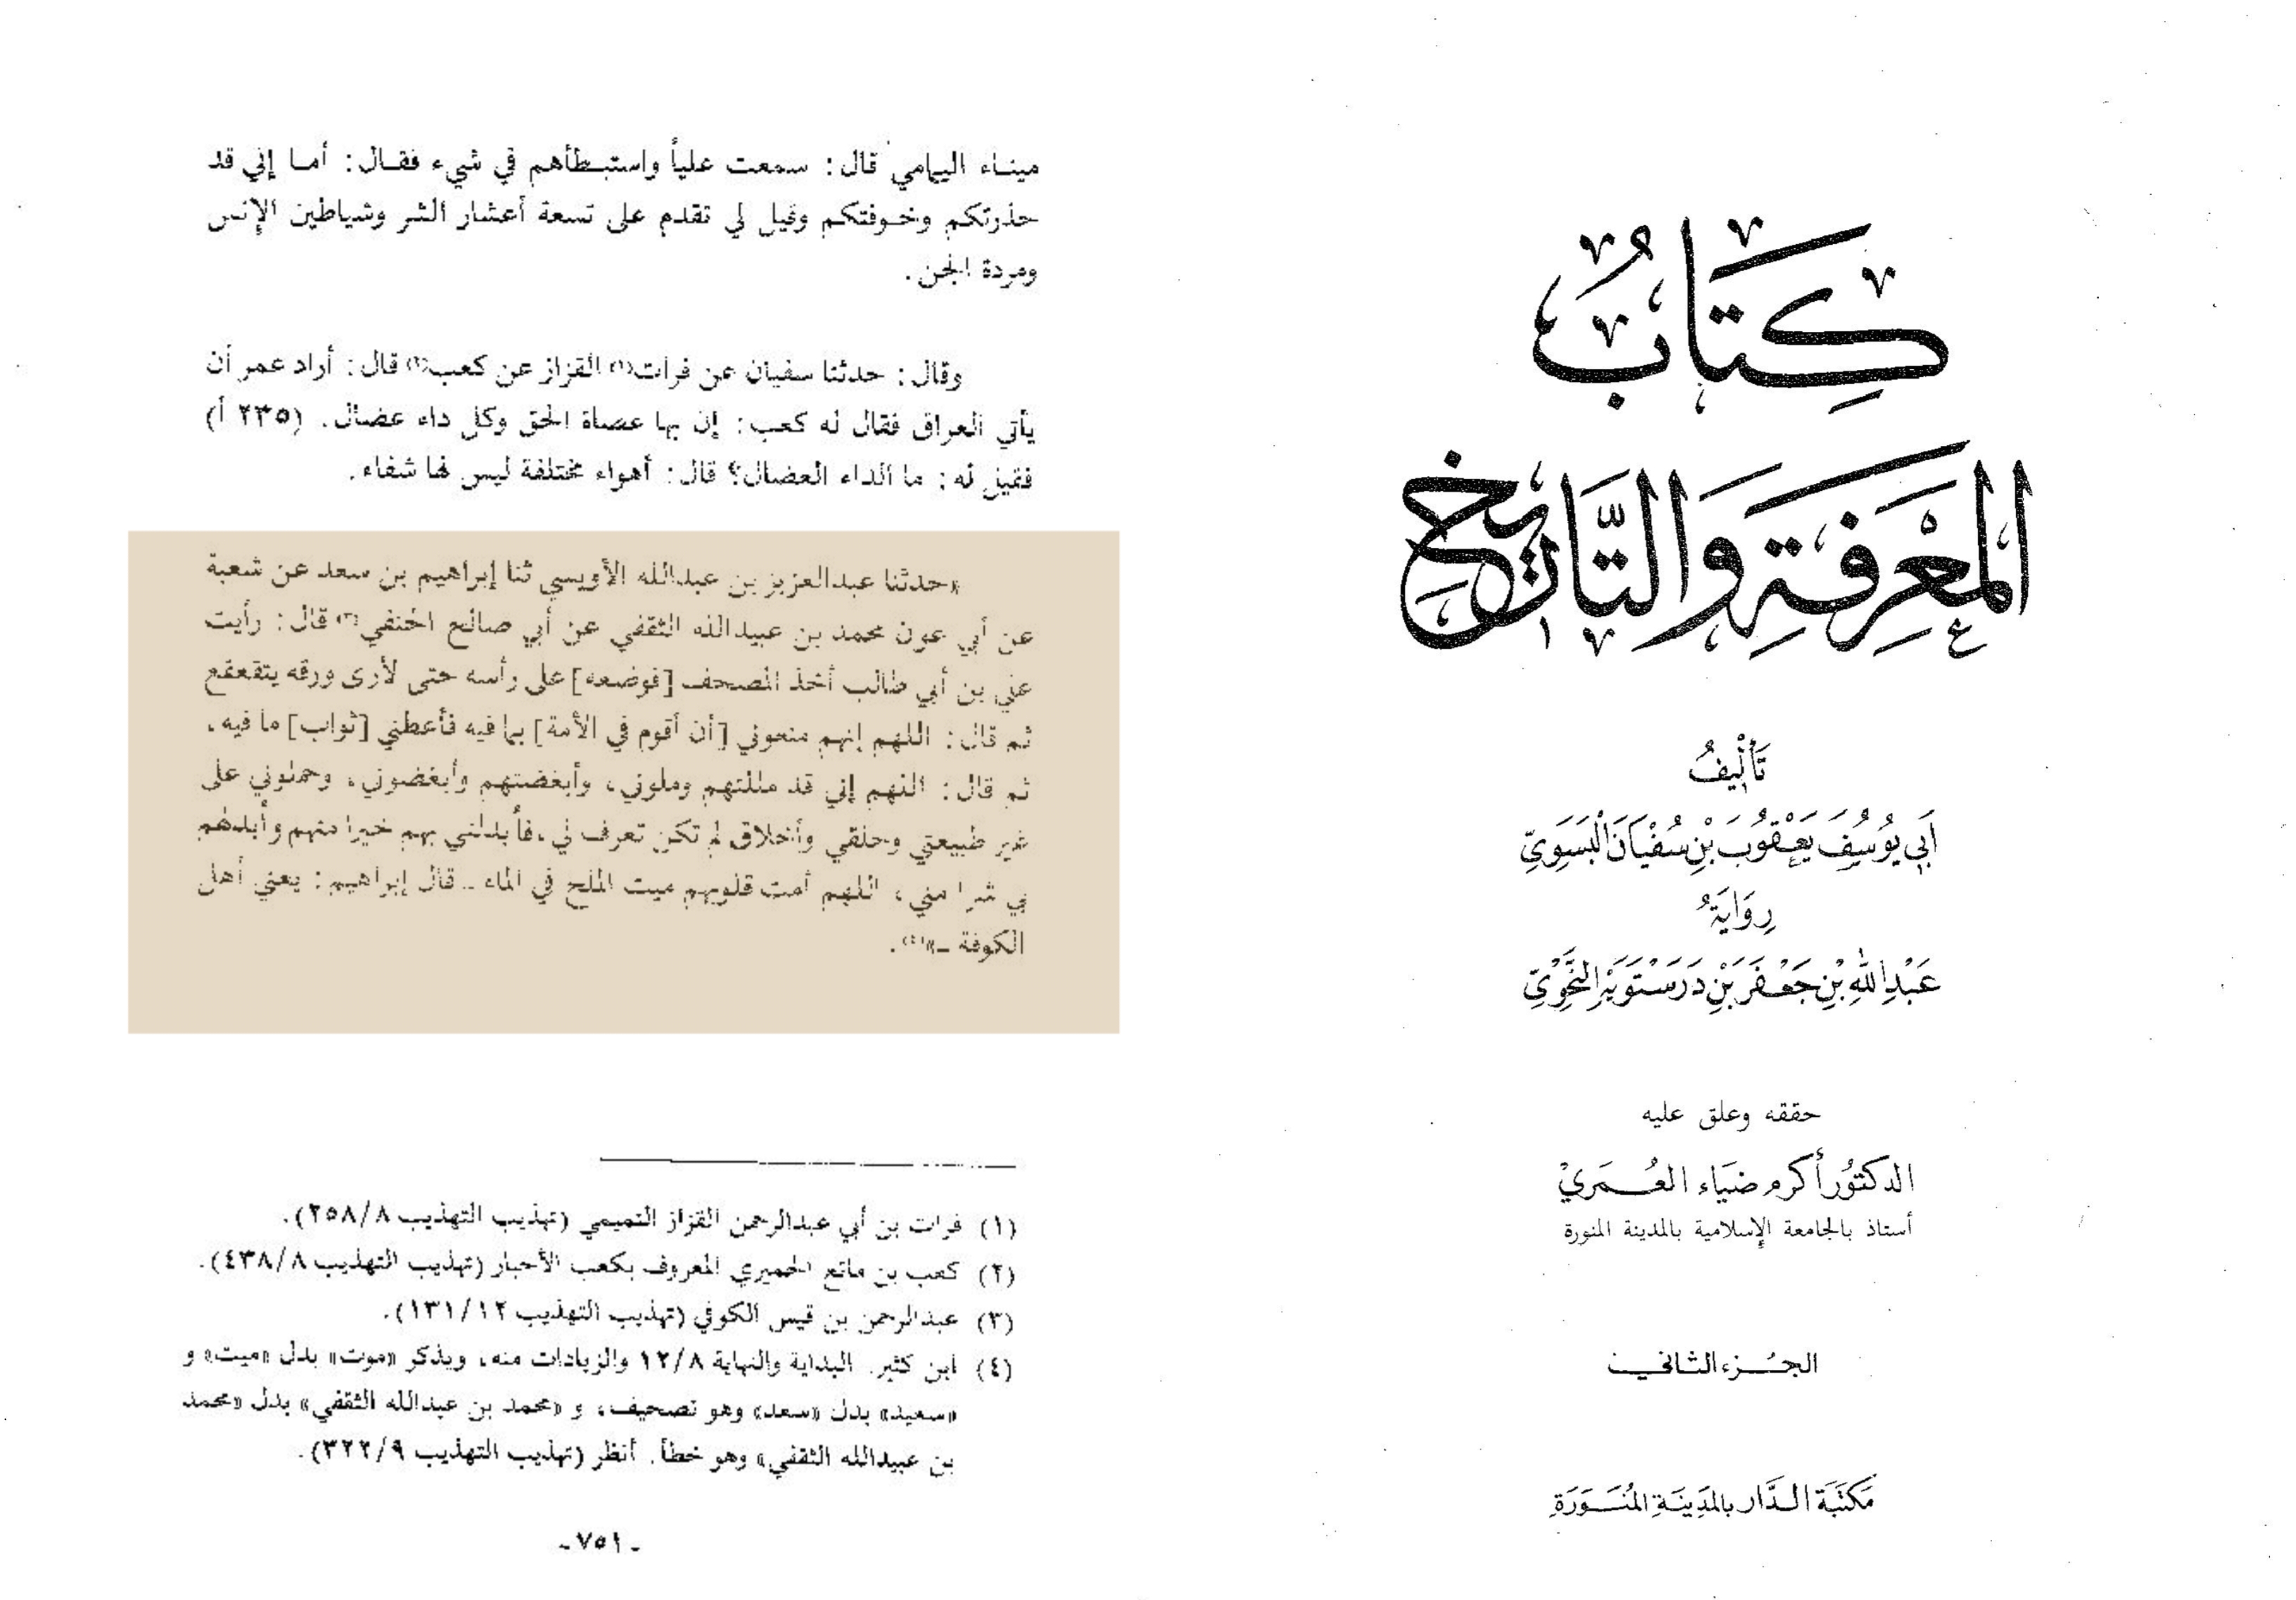 كِتَابُ
المَعْرِفَةِ وَالتَّارِيخِ
تَأْلِيفُ
أَبِي يُوسُفَ يَعْقُوبَ بْنِ سُفْيَانَ الْبَسَوِيّ
رِوَايَةُ
عَبْدِ اللهِ بْنِ جَعْفَرَ بْنِ دَرَسْتَوَيْهِ النَّحْوِيّ
حققه وعلق عليه
الدكتُور أكرم ضيَاء العُمَريْ
أستاذ بالجامعة الإسلامية بالمدينة المنورة
الجزء الثاني
مَكتَبَة الدَّار بالمَدِينَةِ المُنَوَّرَةِ
مينـاء اليهامي قال : سمعت علياً واستبـطأهم في شيء فقـال : أمـا إني قد
حذرتكم وخـوفتكم وقيل لي تقدم على تسعة أعشار الشر وشياطين الإنس
ومردة الجن .
وقال : حدثنا سفيان عن فرات(١) القزاز عن كعب(٢) قال : أراد عمر أن
يأتي العراق فقال له كعب : إن بها عصاة الحق وكل داء عضال . (٢٣٥ أ)
فقيل له : ما الداء العضال؟ قال : أهواء مختلفة ليس لها شفاء .
«حدثنا عبدالعزيز بن عبدالله الأويسي ثنا إبراهيم بن سعد عن شعبة
عن أبي عون محمد بن عبيدالله الثقفي عن أبي صالح الحنفي(٣) قال : رأيت
علي بن أبي طالب أخذ المصحف [فوضعه] على رأسه حتى لأرى ورقه يتقعقع
ثم قال : اللهم إنهم منعوني [أن أقوم في الأمة] بما فيه فأعطني [ثواب] ما فيه ،
ثم قال : اللهم إني قد مللتهم وملوني ، وأبغضتهم وأبغضوني ، وحملوني على
غير طبيعتي وخلقي وأخلاق لم تكن تعرف لي ، فأبدلني بهم خيرا منهم وأبدلهم
بي شرا مني ، اللهم أمت قلوبهم ميت الملح في الماء ـ قال إبراهيم : يعني أهل
الكوفة ـ»(٤) .
(١) فرات بن أبي عبدالرحمن القزاز التميمي (تهذيب التهذيب ٢٥٨/٨) .
(٢) كعب بن ماتع الحميري المعروف بكعب الأحبار (تهذيب التهذيب ٤٣٨/٨) .
(٣) عبدالرحمن بن قيس الكوفي (تهذيب التهذيب ١٣١/١٢) .
(٤) ابن كثير . البداية والنهاية ١٢/٨ والزيادات منه ، ويذكر «موت» بدل «ميت» و
«سعيد» بدل «سعد» وهو تصحيف ، و «محمد بن عبدالله الثقفي» بدل «محمد
بن عبيدالله الثقفي» وهو خطأ . أنظر (تهذيب التهذيب ٣٢٢/٩) .
ـ ٧٥١ ـ